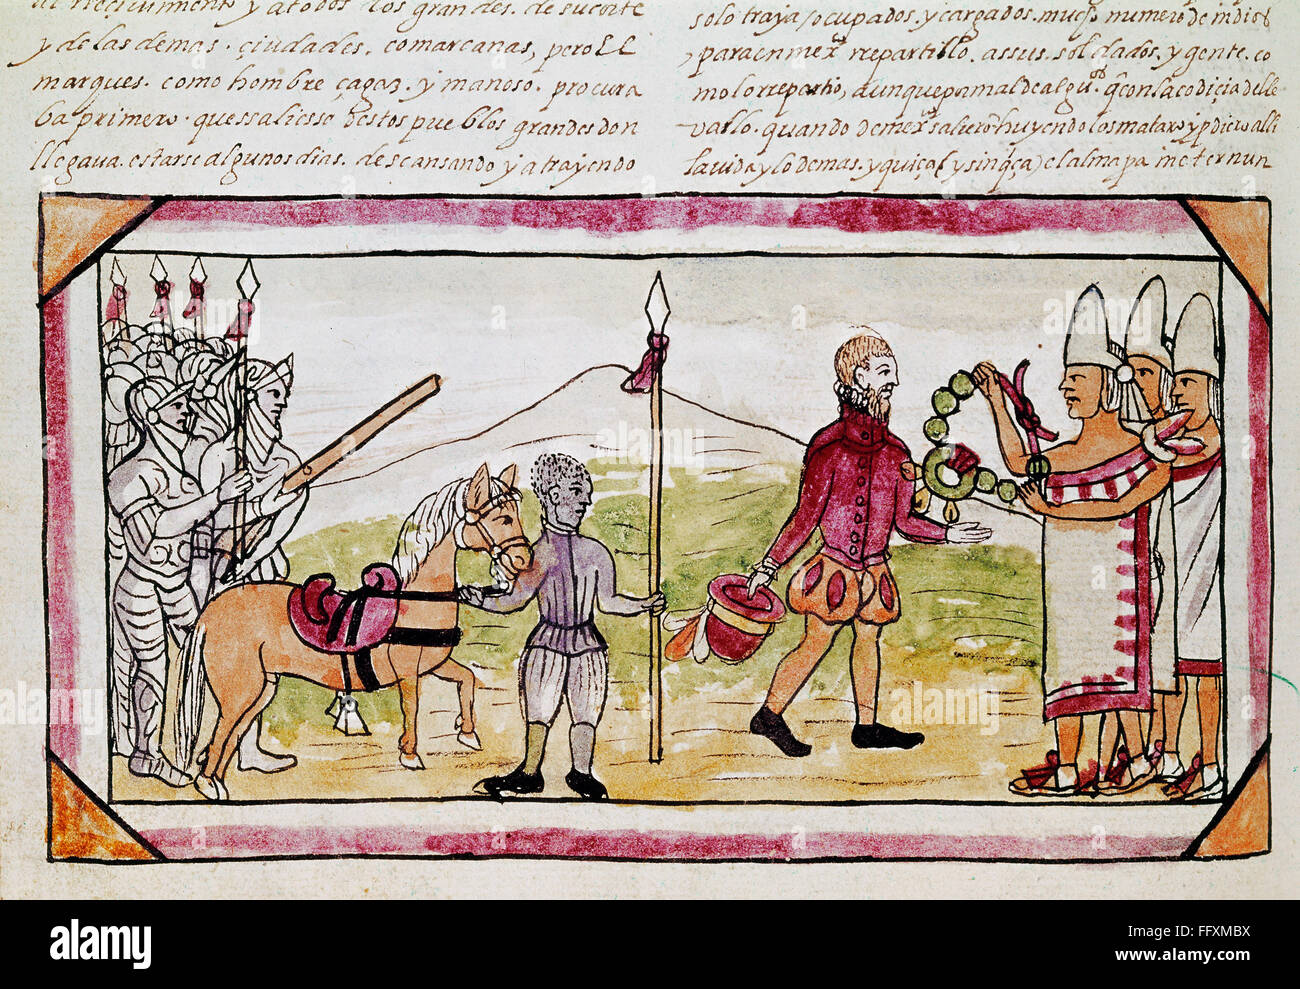 al recivimiento y a todos los grandes. de su corte
y de las demas. çiudades, comarcanas, pero EL
marques. como hombre çagaz. y manoso. procura
ba primero. que ssaliesse destos pueblos grandes don
llegava. estarse algunos dias. descansando y atrayendo
solo traja / ocupados. y cargados. mucho numero de indios
, para en mexco repartillo. a ssus. soldados. y gente. co
mo lo rrepartio, aunque para mal de algunos que con la codiçia de lle
vallo. quando de mexco salieron huyendo los mataron y perdieron alli
la vida y lo demas. y quiça (y sin quiça) el alma para in eternun
a
alamy stock photo
FFXMBX
www.alamy.com